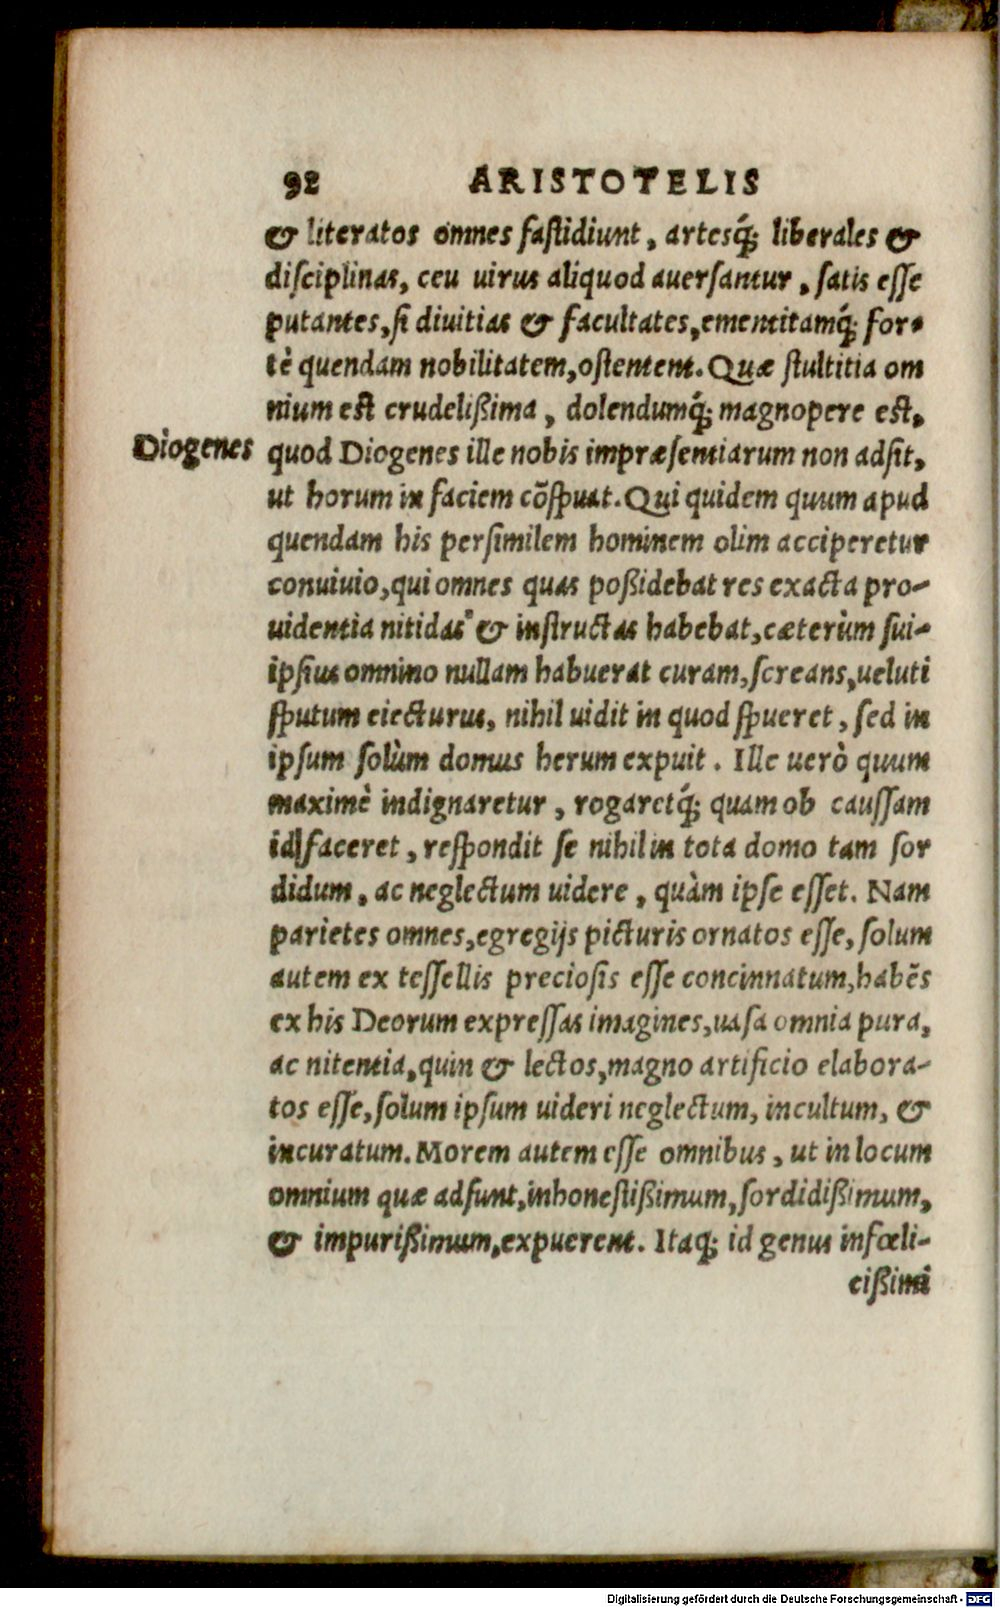 92 ARISTOTELIS
& literatos omnes faſtidiunt, artesq́; liberales &
diſciplinas, ceu uirus aliquod auerſantur, ſatis eſſe
putantes, ſi diuitias & facultates, ementitamq́; for-
tè quendam nobilitatem, oſtentent. Quæ ſtultitia om
nium eſt crudelißima, dolendumq́; magnopere eſt,
Diogenes
quod Diogenes ille nobis impræſentiarum non adſit,
ut horum in faciem cõſpuat. Qui quidem quum apud
quendam his perſimilem hominem olim acciperetur
conuiuio, qui omnes quas poßidebat res exacta pro-
uidentia nitidas & inſtructas habebat, cæterùm ſui-
ipſius omnino nullam habuerat curam, ſcreans, ueluti
ſputum eiecturus, nihil uidit in quod ſpueret, ſed in
ipſum ſolùm domus herum expuit. Ille uerò quum
maximè indignaretur, rogaretq́; quam ob cauſſam
id faceret, reſpondit ſe nihil in tota domo tam ſor
didum, ac neglectum uidere, quàm ipſe eſſet. Nam
parietes omnes, egregijs picturis ornatos eſſe, ſolum
autem ex teſſellis precioſis eſſe concinnatum, habẽs
ex his Deorum expreſſas imagines, uaſa omnia pura,
ac nitentia, quin & lectos, magno artificio elabora-
tos eſſe, ſolum ipſum uideri neglectum, incultum, &
incuratum. Morem autem eſſe omnibus, ut in locum
omnium quæ adſunt, inhoneſtißimum, ſordidißimum,
& impurißimum, expuerent. Itaq; id genus infœli-
cißimi
Digitalisierung gefördert durch die Deutsche Forschungsgemeinschaft - DFG